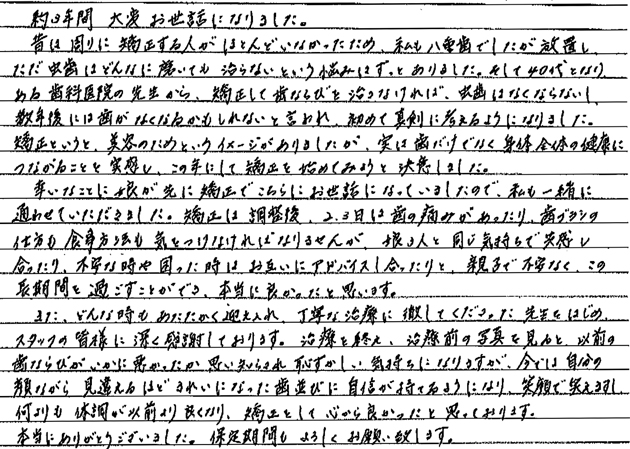 約3年間 大変お世話になりました。
昔は周りに矯正する人がほとんどいなかったため、私も八重歯でしたが放置し、
ただ虫歯はどんなに磨いても治らないという悩みはずっとありました。そして40代となり
ある歯科医院の先生から、矯正して歯ならびを治さなければ、虫歯はなくならないし、
数年後には歯がなくなるかもしれないと言われ、初めて真剣に考えるようになりました。
矯正というと、美容のためというイメージがありましたが、実は歯だけでなく身体全体の健康に
つながることを実感し、この年にして矯正を始めてみようと決意しました。
幸いなことに娘が先に矯正でこちらにお世話になっていましたので、私も一緒に
通わせていただきました。矯正は調整後、2.3日は歯の痛みがあったり、歯ブラシの
仕方も食事方法も気をつけなければなりませんが、娘3人と同じ気持ちで実感し
合ったり、不安な時や困った時はお互いにアドバイスし合ったりと、親子で不安なく、この
長期間を過ごすことができ、本当に良かったと思います。
また、どんな時もあたたかく迎え入れ、丁寧な治療に徹してくださった先生をはじめ、
スタッフの皆様に深く感謝しております。治療を終え、治療前の写真を見ると、以前の
歯ならびがいかに悪かったか思い知らされ恥ずかしい気持ちになりますが、今では自分の
顔ながら見違えるほどきれいになった歯並びに自信が持てるようになり、笑顔で笑えますし
何よりも体調が以前より良くなり、矯正をして心から良かったと思っております。
本当にありがとうございました。保定期間もよろしくお願い致します。